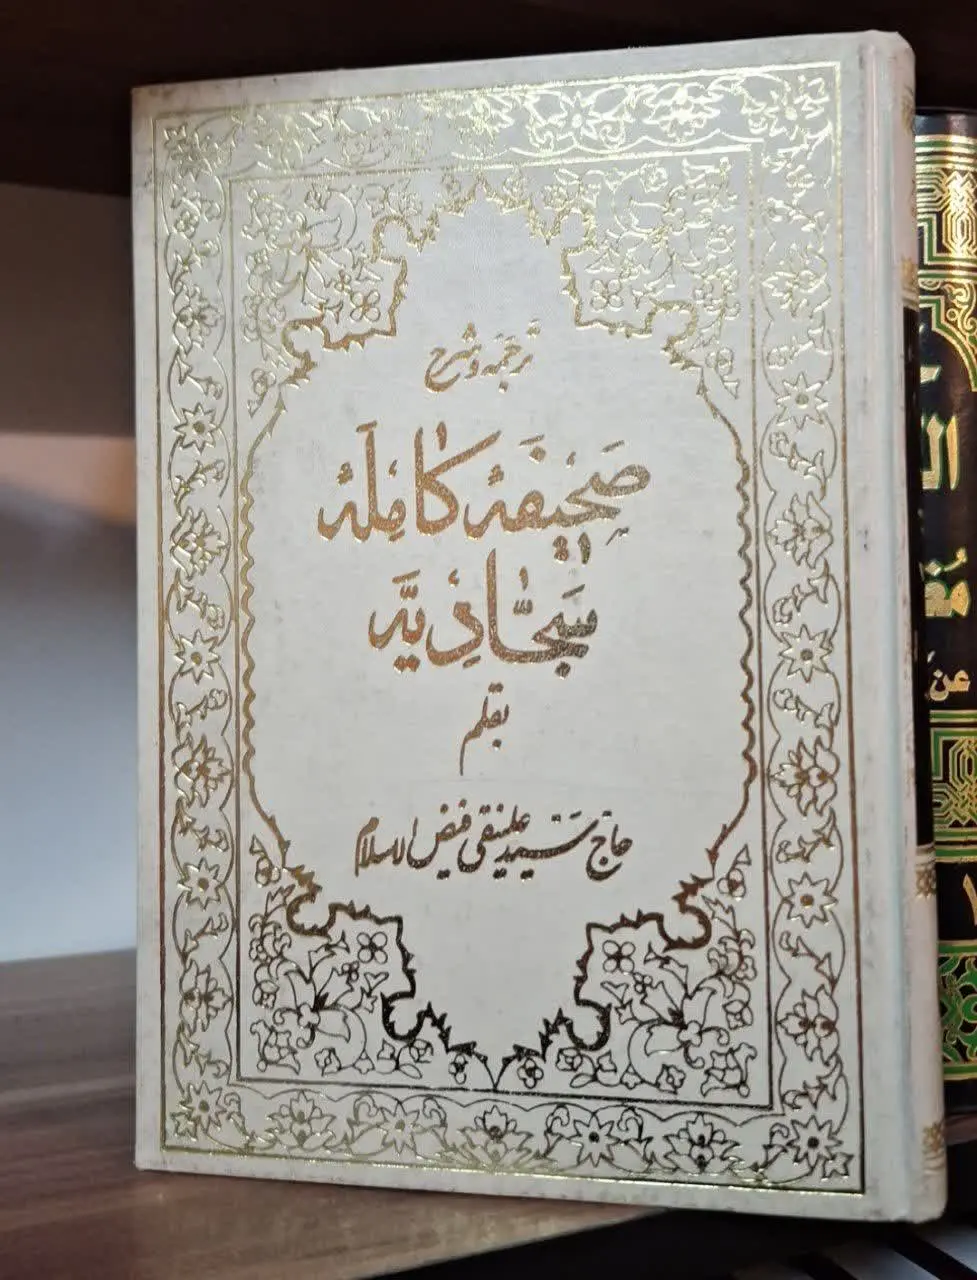 تَرجَمَه وَ شَرح
صَحِیفَهٔ کٰامِلَهٔ
سَجّٰادِیَّه
بقلم
حاج سَیّد علینقی فیض الاسلام
عَن
١